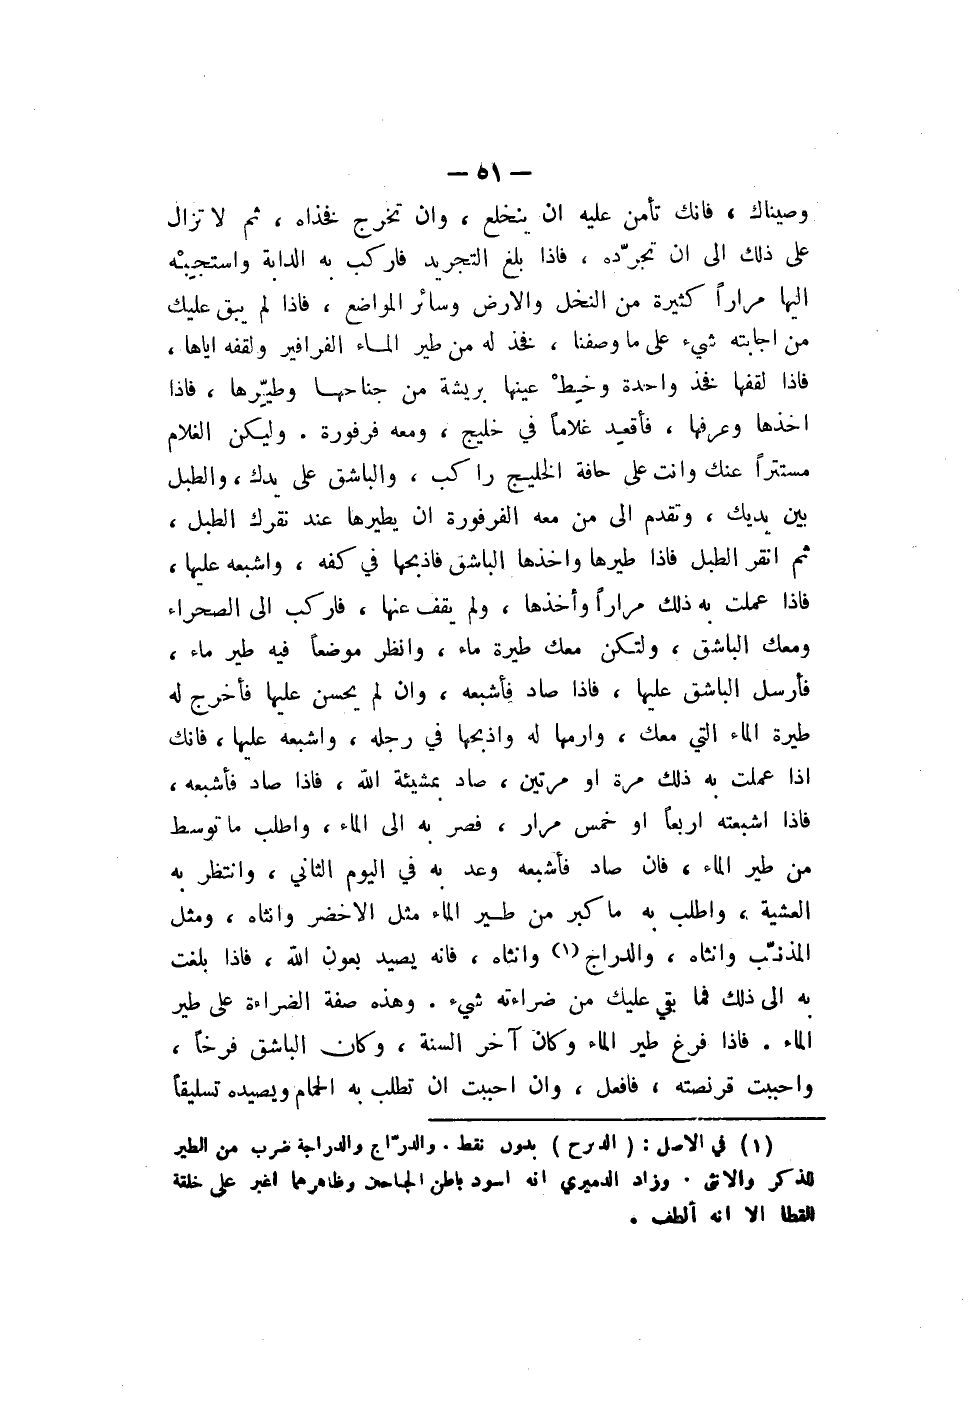 — ٥١ —
وصيناك ، فانك تأمن عليه ان ينخلع ، وان تخرج فخذاه ، ثم لا تزال
على ذلك الى ان تجرّده ، فاذا بلغ التجريد فاركب به الدابة واستجبْه
اليها مراراً كثيرة من النخل والارض وسائر المواضع ، فاذا لم يبق عليك
من اجابته شيء على ما وصفنا ، فخذ له من طير المـاء الفرافير ولقفه اياها ،
فاذا لقفها فخذ واحدة وخيطْ عينها بريشة من جناحهـا وطيّرها ، فاذا
اخذها وعرفها ، فأقعد غلاماً في خليج ، ومعه فرفورة . وليكن الغلام
مستتراً عنك وانت على حافة الخليـج راكب ، والباشق على يدك ، والطبل
بين يديك ، وتقدم الى من معه الفرفورة ان يطيرها عند نقرك الطبل ،
ثم انقر الطبل فاذا طيرها واخذها الباشق فاذبحها في كفه ، واشبعه عليها ،
فاذا عملت به ذلك مراراً وأخذها ، ولم يقف عنها ، فاركب الى الصحراء
ومعك الباشق ، ولتكن معك طيرة ماء ، وانظر موضعاً فيه طير ماء ،
فأرسل الباشق عليها ، فاذا صاد فأشبعه ، وان لم يحسن عليها فأخرج له
طيرة الماء التي معك ، وارمها له واذبحها في رجله ، واشبعه عليها ، فانك
اذا عملت به ذلك مرة او مرتين ، صاد بمشيئة الله ، فاذا صاد فأشبعه ،
فاذا اشبعته اربعاً او خمس مرار ، فصر به الى الماء ، واطلب ما توسط
من طير الماء ، فان صاد فأشبعه وعد به في اليوم الثاني ، وانتظر به
العشية ، واطلب به ما كبر من طـير الماء مثل الاخضر وانثاه ، ومثل
المذنّب وانثاه ، والدراج (١) وانثاه ، فانه يصيد بعون الله ، فاذا بلغت
به الى ذلك فما بقي عليك من ضراءته شيء . وهذه صفة الضراءة على طير
الماء . فاذا فرغ طير الماء وكان آخر السنة ، وكان الباشق فرخاً ،
واحببت قرنصته ، فافعل ، وان احببت ان تطلب به الحمام ويصيده تسليقاً
(١) في الاصل : ( الدبرح ) بدون نقط . والدرّاج والدراجة ضرب من الطير
للذكر والانثى . وزاد الدميري انه اسود باطن الجناحين وظاهرهما اغبر على خلقة
القطا الا انه ألطف .